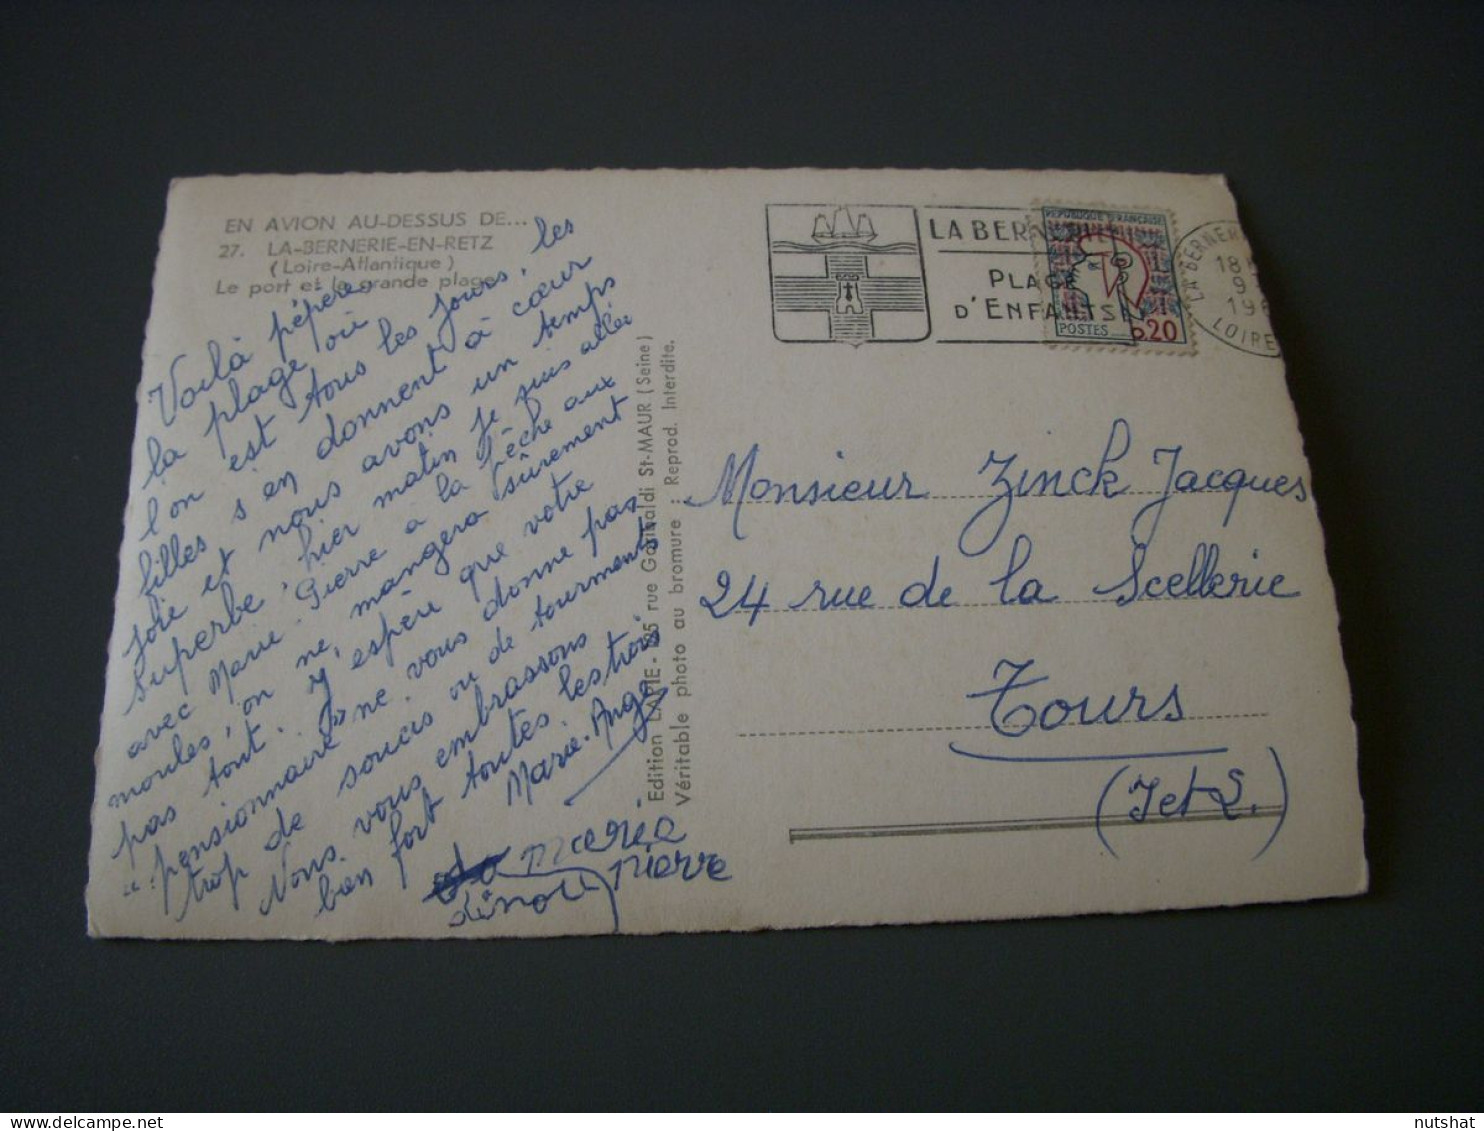 EN AVION AU-DESSUS DE...
27. LA-BERNERIE-EN-RETZ
(Loire-Atlantique)
Le port et la grande plage
Voilà pépères
la plage où
l'on est tous les jours, les
filles s'en donnent à cœur
joie et nous avons un temps
superbe, hier matin je suis allée
avec Marie-Pierre a la pêche aux
moules, on ne mangera sûrement
pas tout. J'y espère que votre
"pensionnaire" ne vous donne pas
trop de soucis ou de tourments
Nous vous embrassons
bien fort toutes les trois
Marie-Ange
maria
pierre
Edition LAPIE - rue Garibaldi St-MAUR (Seine)
Véritable photo au bromure : Reprod. Interdite.
LA BERNERIE
PLAGE
D'ENFANTS
REPUBLIQUE FRANÇAISE
POSTES
0.20
LA BERNER
18
9
196
LOIRE
Monsieur Zinck Jacques
24 rue de la Scellerie
Tours
(I et L.)
nutshat